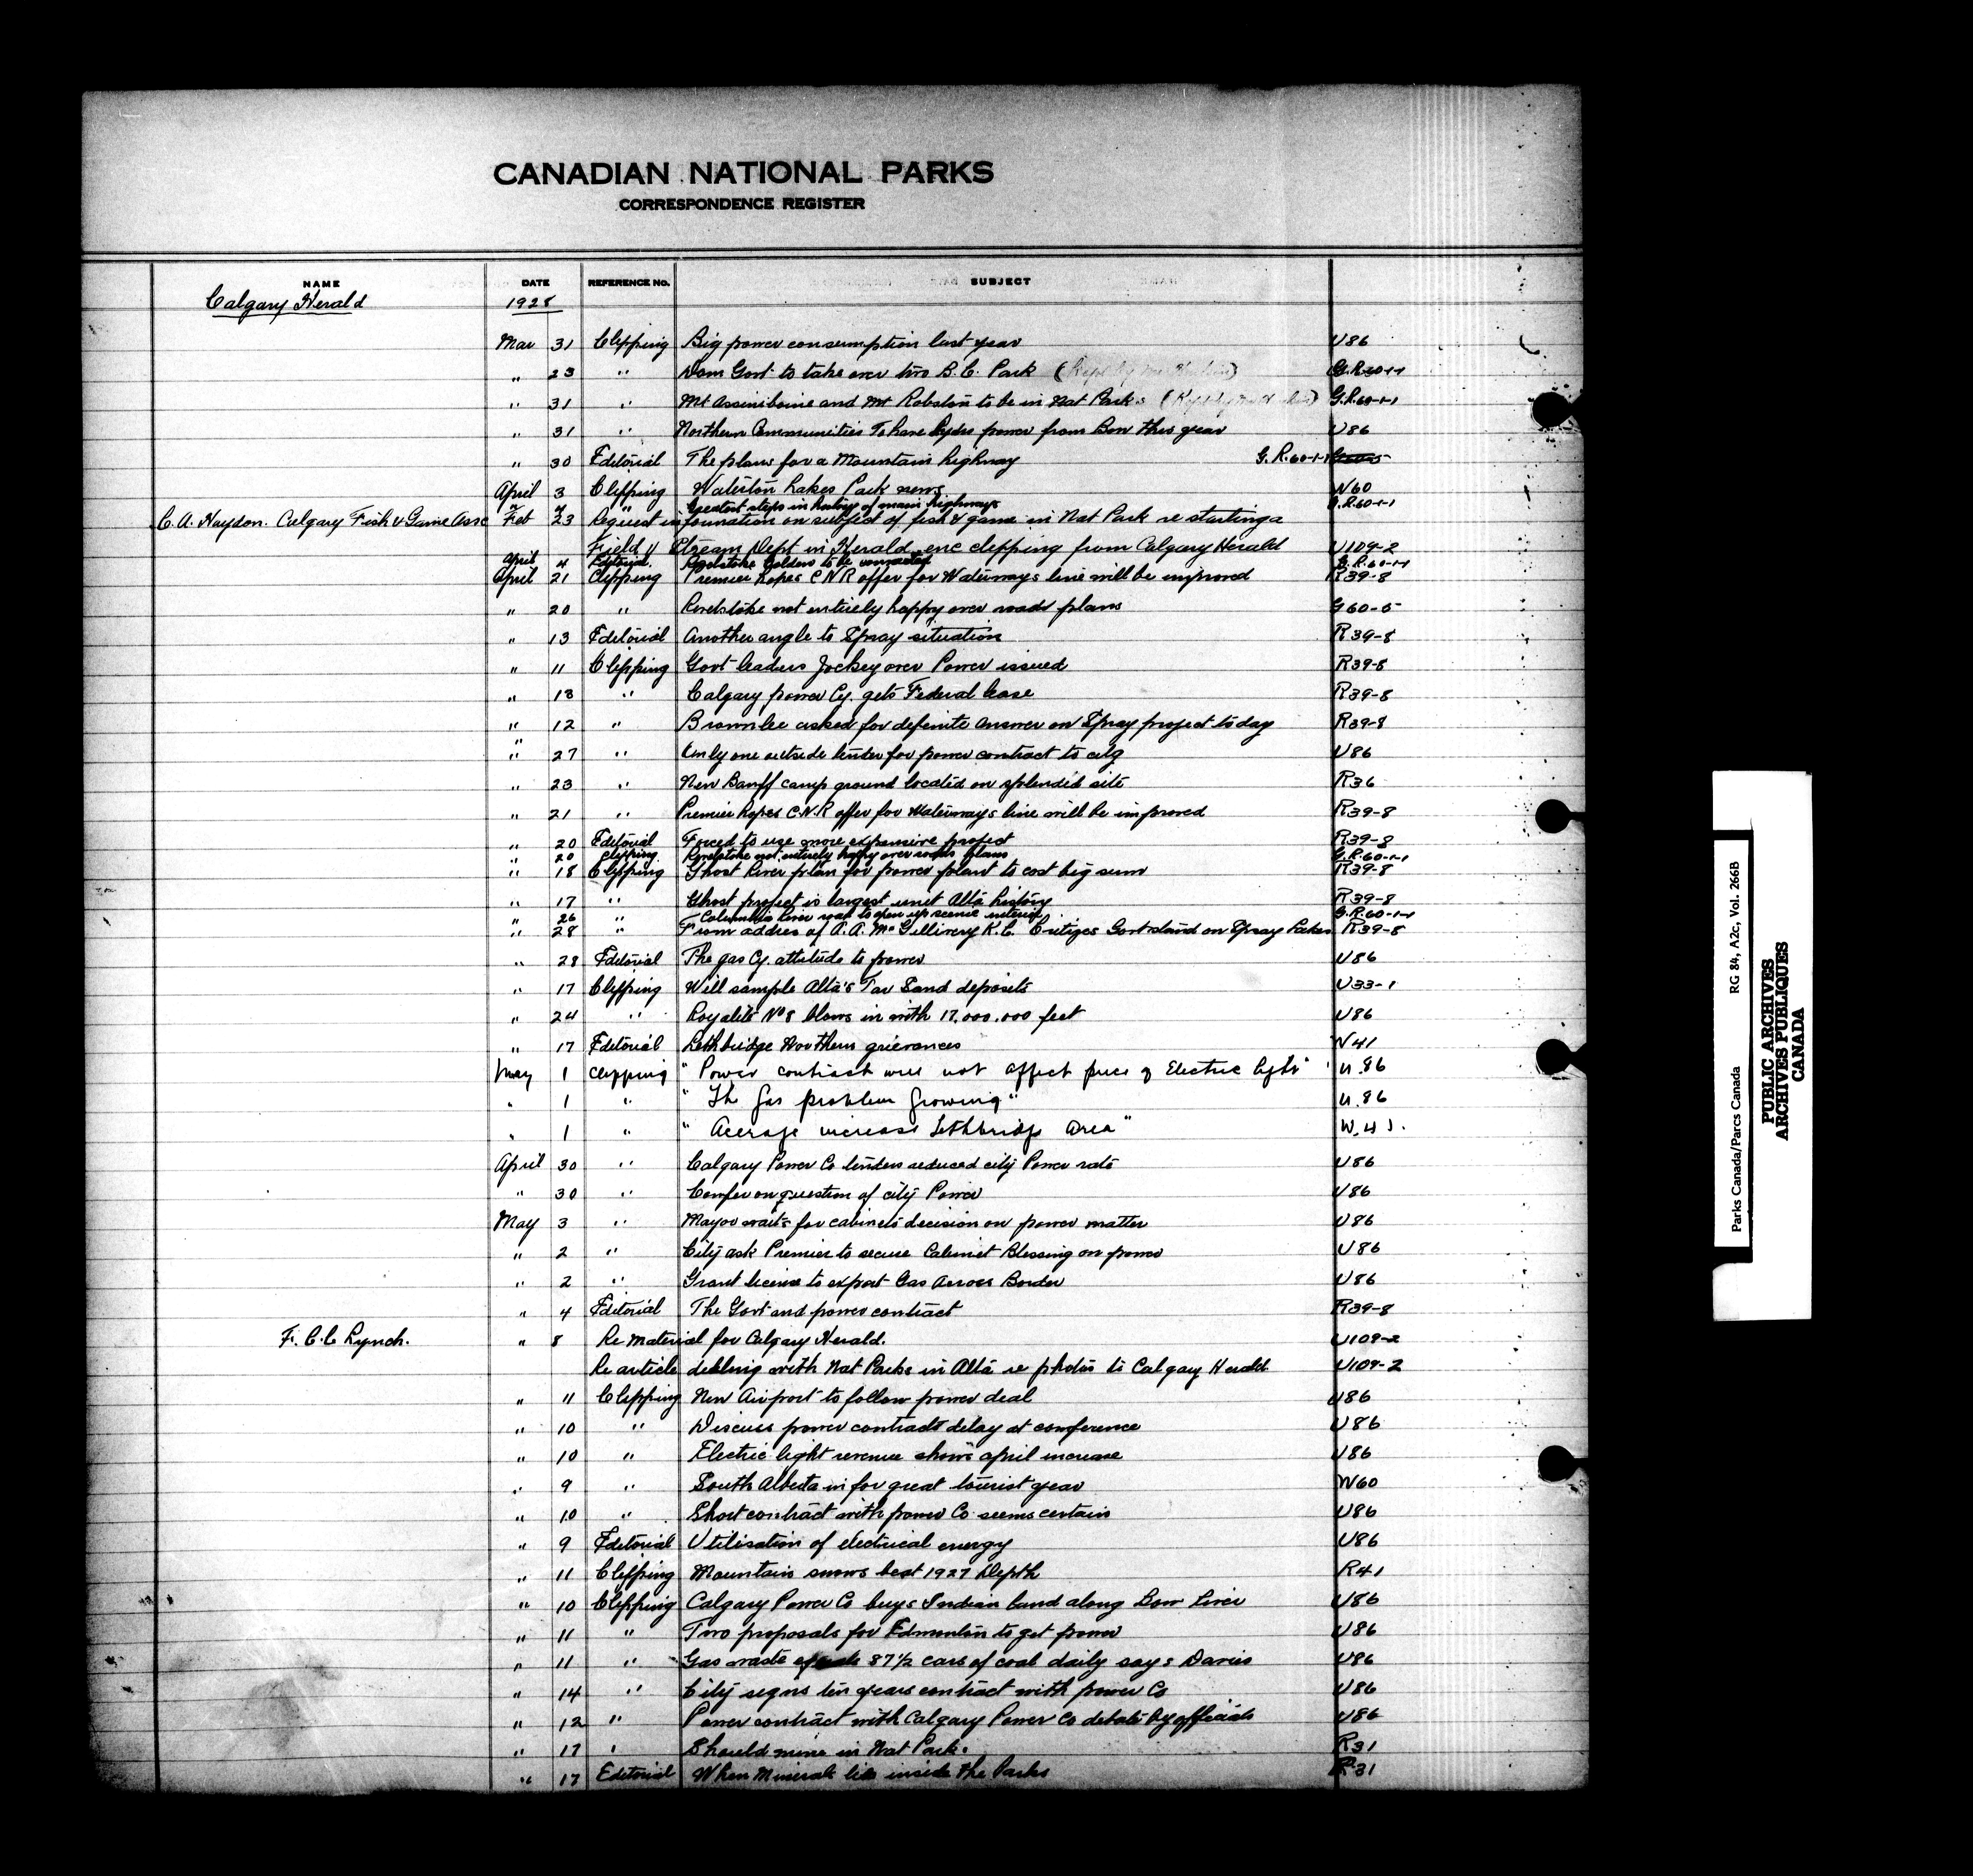 CANADIAN NATIONAL PARKS
CORRESPONDENCE REGISTER
NAME DATE REFERENCE No. SUBJECT
Calgary Herald 1928
Mar 31 Clipping Big power consumption last year U86
" 23 " Dom Govt to take over two B.C. Park G.R.60-1-1
" 31 " Mt Assiniboine and Mt Robston to be in Nat Parks G.R.60-1-1
" 31 " Northern Communities To have hydro power from Bow this year U86
" 30 Editorial The plans for a Mountain highway G.R.60-1-1
April 3 Clipping Waterton Lakes Park news W60
" 4 " Greatest steps in history of main highways G.R.60-1-1
C. A. Haydon. Calgary Fish & Game Asso Feb 23 Request information on subject of fish & game in Nat Park re starting a
Field & Stream Dept in Herald enc clipping from Calgary Herald U109-2
April 4 Editorial Revelstoke Goldens to be connected G.R.60-1-1
April 21 Clipping Premier hopes C N R offer for Waterways line will be improved R39-8
" 20 " Revelstoke not entirely happy over roads plans G60-5
" 13 Editorial Another angle to Spray situation R39-8
" 11 Clipping Govt leaders Jockey over Power issued R39-8
" 13 " Calgary power Cy. gets Federal lease R39-8
" 12 " Brownlee asked for definite answer on Spray project today R39-8
" 27 " Only one outside tender for power contract to city U86
" 23 " New Banff camp ground located on splendid site R36
" 21 " Premier hopes C.N.R offer for Waterways line will be improved R39-8
" 20 Editorial Forced to use more expensive project R39-8
" 20 Clipping Revelstoke not entirely happy over roads plans G.R.60-1-1
" 18 Clipping Ghost River plan for power plant to cost big sum R39-8
" 17 " Ghost project is largest unit Alta history R39-8
" 26 " Columbia River road to open up scenic interior G.R.60-1-1
" 28 " From addres of A. A. McGillivery K.C. Critizes Govt stand on Spray Lakes R39-8
" 28 Editorial The gas Cy. attitude to power U86
" 17 Clipping Will sample Alta's Tar Sand deposits U33-1
" 24 " Royalite No 8 blows in with 17,000,000 feet U86
" 17 Editorial Lethbridge Northern grievances W41
May 1 Clipping "Power contract will not affect price of Electric light" U.86
" 1 " "The Gas problem Growing" U.86
" 1 " "Acerage increase Lethbridge Area" W.41.
April 30 " Calgary Power Co tenders reduced city Power rate U86
" 30 " Confer on question of city Power U86
May 3 " Mayor waits for cabinets decision on power matter U86
" 2 " City ask Premier to secure Cabinet Blessing on power U86
" 2 " Grant license to export Gas Across Border U86
" 4 Editorial The Govt and power contract R39-8
F. C. C. Lynch. " 8 Re material for Calgary Herald. U109-2
Re article dealing with Nat Parks in Alta re photos to Calgary Herald U109-2
" 11 Clipping New Airport to follow power deal U86
" 10 " Discuss power contract delay at conference U86
" 10 " Electric light revenue shows april increase U86
" 9 " South Alberta in for great tourist year W60
" 10 " Short contract with power Co seems certain U86
" 9 Editorial Utilisation of electrical energy U86
" 11 Clipping Mountain snows beat 1927 Depth R41
" 10 Clipping Calgary Power Co buys Indian land along Bow River U86
" 11 " Two proposals for Edmonton to get power U86
" 11 " Gas waste equals 87½ cars of coal daily says Davies U86
" 14 " City signs ten years contract with power Co U86
" 12 " Power contract with Calgary Power Co debate by officials U86
" 17 " Should mine in Nat Park. R31
" 17 Editorial When Minerals lie inside the Parks R31
Parks Canada/Parcs Canada RG 84, A2c, Vol. 266B
PUBLIC ARCHIVES
ARCHIVES PUBLIQUES
CANADA